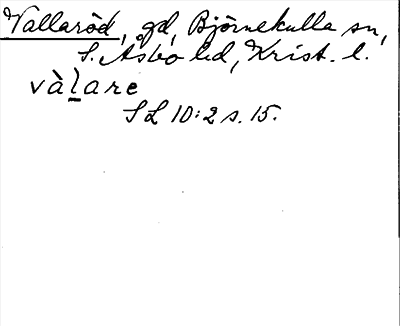 Vallaröd, gd, Björnekulla sn,
S. Åsbo hd, Krist. l.
vàl̲are
SL 10:2 s. 15.